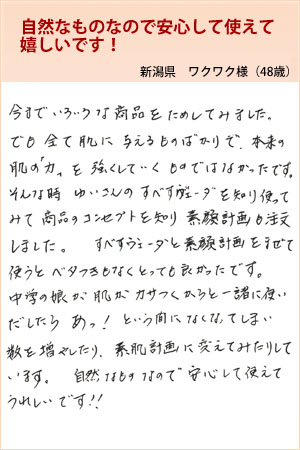 自然なものなので安心して使えて
嬉しいです！
新潟県　ワクワク様（48歳）
今までいろいろな商品をためしてみました。
でも全て肌に与えるものばかりで、本来の
肌の「力」を強くしていくものではなかったです。
そんな時 ゆいさんのすべすヴェーダを知り使って
みて商品のコンセプトを知り素顔計画も注文
しました。 すべすヴェーダと素顔計画をまぜて
使うとベタつきもなくとっても良かったです。
中学の娘が肌がカサつくからと一緒に使い
だしたら あっ！という間になくなってしまい
数を増やしたり、素肌計画に変えてみたりして
います。 自然なものなので安心して使えて
うれしいです!!